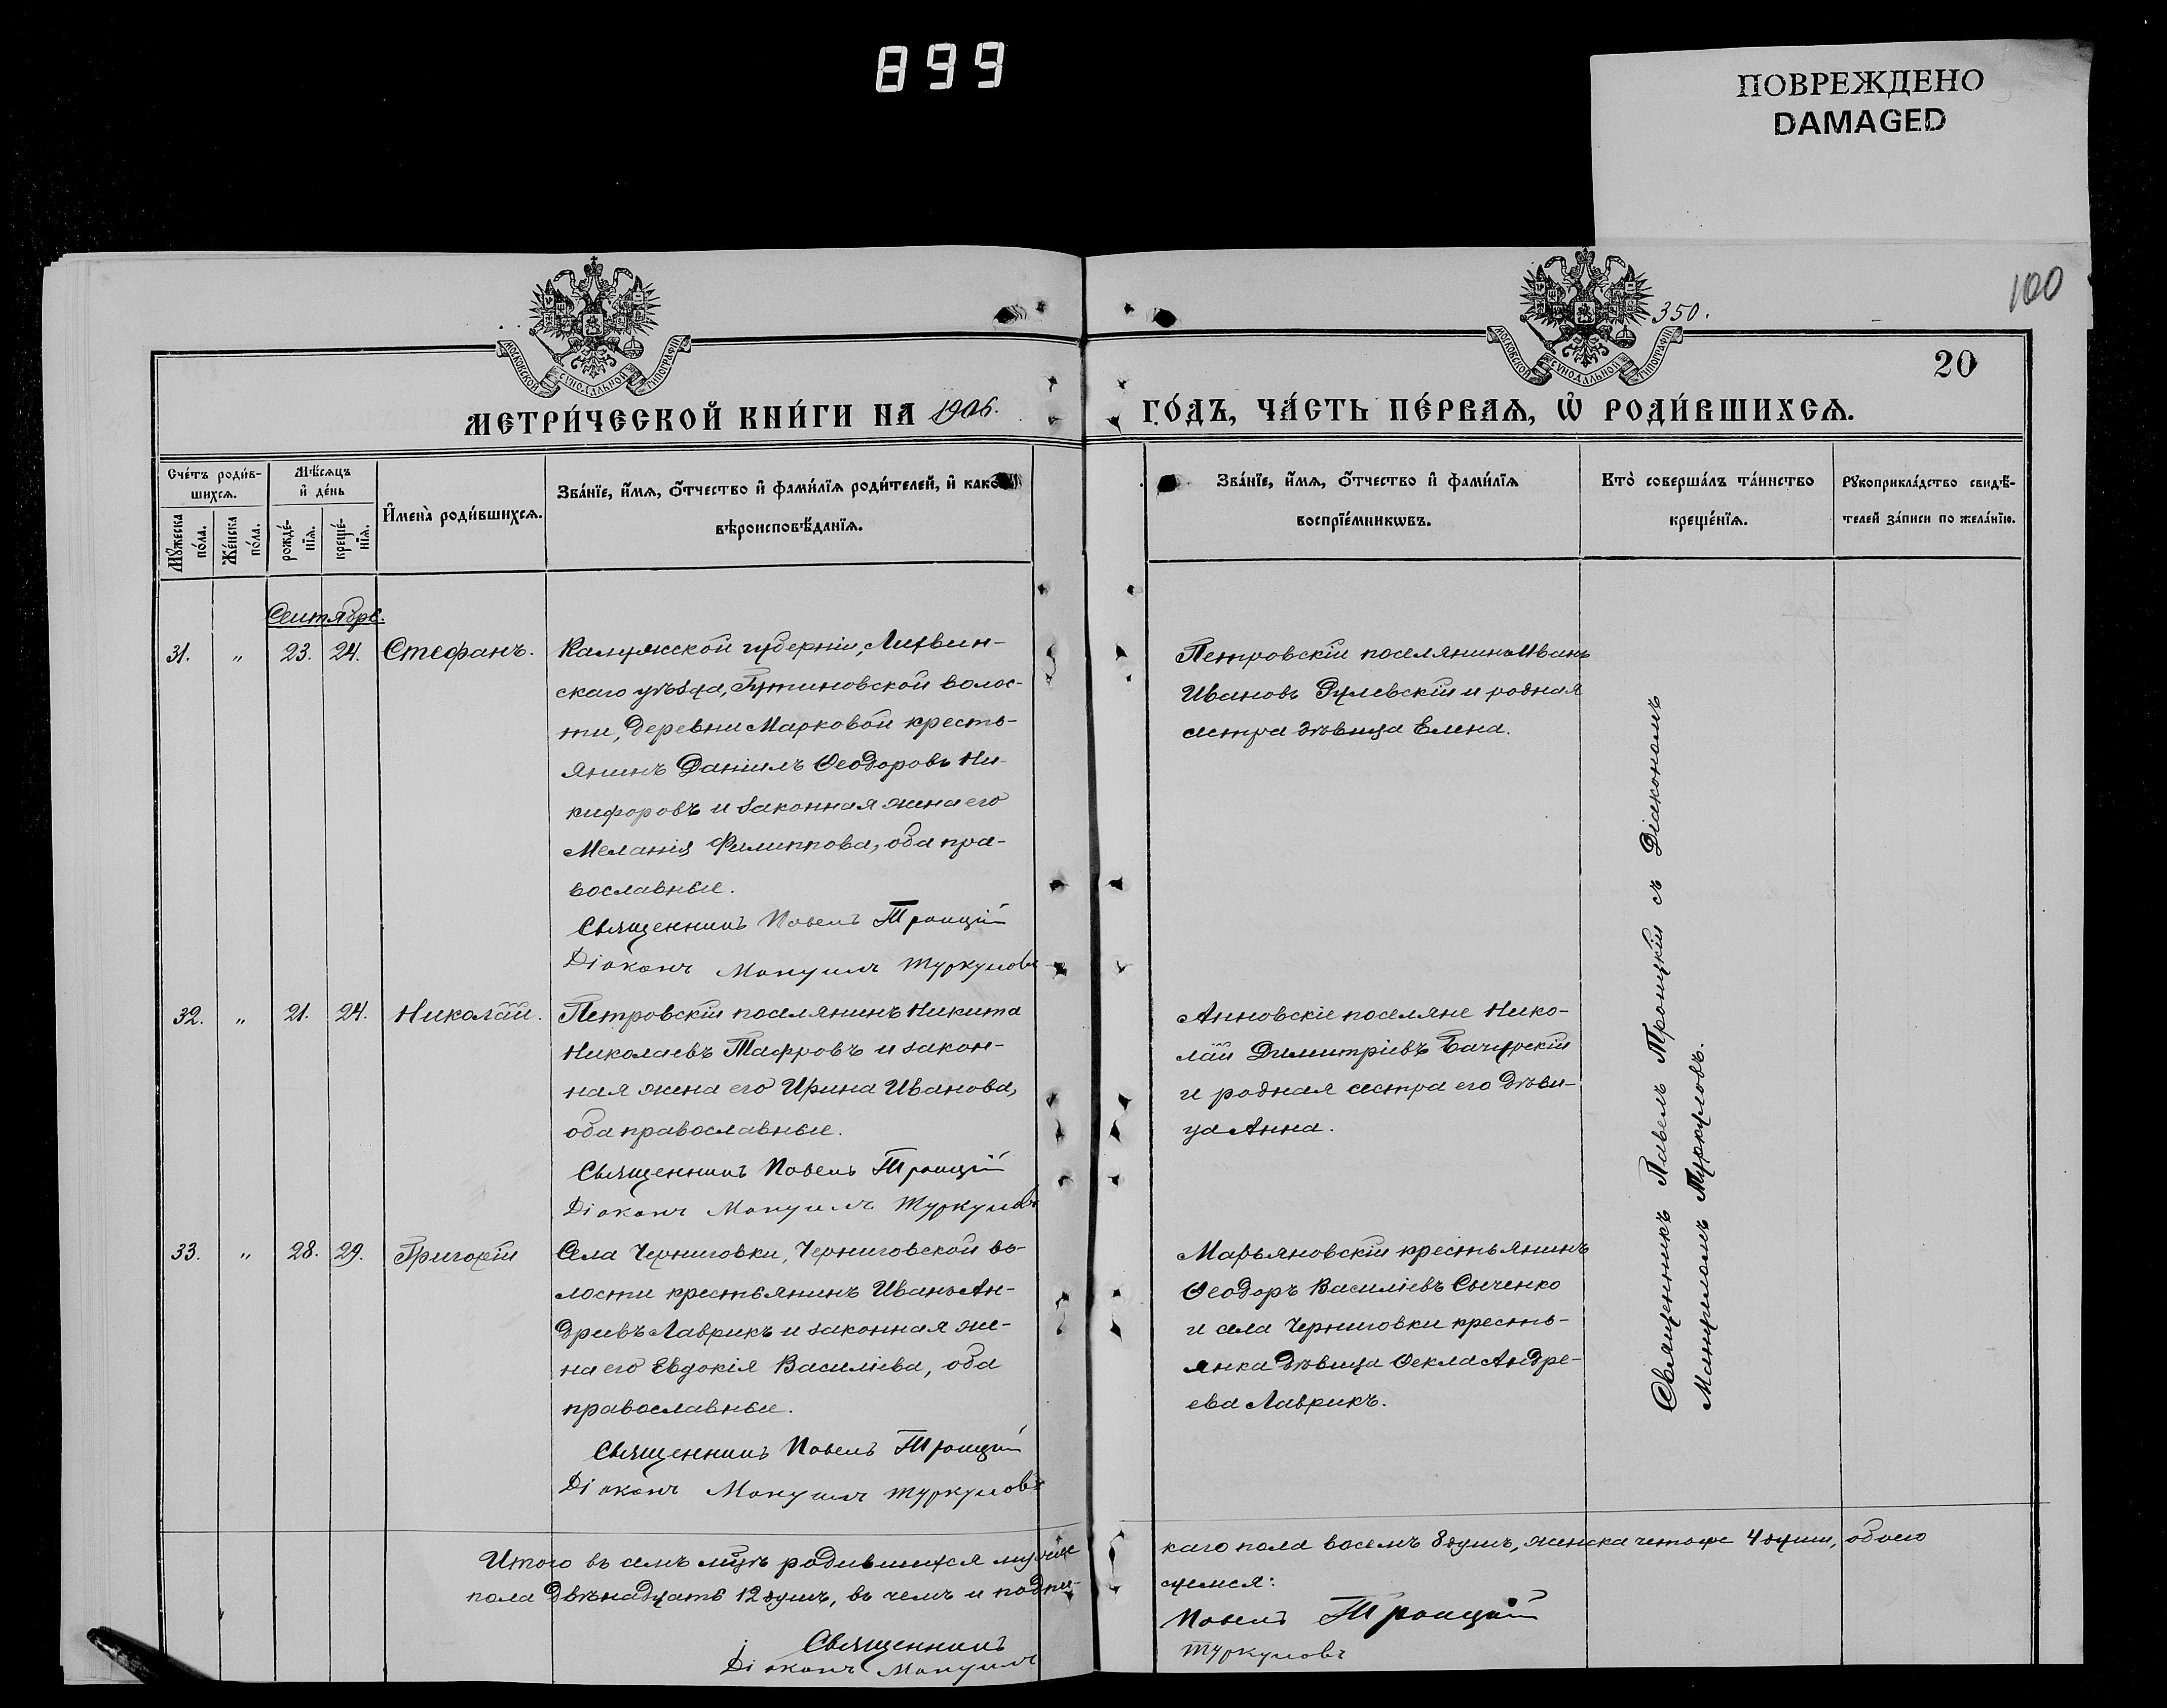 899
ПОВРЕЖДЕНО
DAMAGED
100
350.
20
МОСКОВСКОЙ СУНОДАЛЬНОЙ ТИПОГРАФІИ
МОСКОВСКОЙ СУНОДАЛЬНОЙ ТИПОГРАФІИ
МЕТРИ́ЧЕСКОЙ КНИ́ГИ НА 1906.
ГО́ДЪ, ЧА́СТЬ ПЕ́РВАѦ, Ѡ҆ РОДИ́ВШИХСѦ.
Сче́тъ роди́в-
шихсѧ.
Мꙋ́жеска
по́ла.
Же́нска
по́ла.
Мѣ́сѧцъ
и҆ де́нь
рожде́-
нїѧ.
креще́-
нїѧ.
И҆мена̀ роди́вшихсѧ.
Зва́нїе, и҆́мѧ, ѻ҆́тчество и҆ фами́лїѧ роди́телей, и҆ како́й
вѣроисповѣ́данїѧ.
Зва́нїе, и҆́мѧ, ѻ҆́тчество и҆ фами́лїѧ
воспрїе́мникѡвъ.
Кто̀ соверша́лъ та́инство
креще́нїѧ.
Рꙋкоприкла́дство свидѣ́-
телей за́писи по жела́нїю.
Сентябрь.
31. " 23. 24. Стефанъ.
Калужской губерніи, Лихвин-
скаго уѣзда, волос-
ти, деревни Марковой кресть-
янинъ Даніилъ Ѳеодоровъ Ни-
кифоровъ и законная жена его
Меланія Филиппова, оба пра-
вославные.
Священникъ Павелъ Троицкій
Діаконъ Мануилъ Туркуловъ
Петровскій поселянинъ Иванъ
Ивановъ Дулевскій и родная
сестра дѣвица Елена.
32. " 21. 24. Николай.
Петровскій поселянинъ Никита
Николаевъ Тафровъ и закон-
ная жена его Ирина Иванова,
оба православные.
Священникъ Павелъ Троицкій
Діаконъ Мануилъ Туркуловъ
Анновскіе поселяне Нико-
лай Димитріевъ Бачурскій
и родная сестра его дѣви-
ца Анна.
33. " 28. 29. Григорій
Села Черниговки, Черниговской во-
лости крестьянинъ Иванъ Ан-
дреевъ Лаврикъ и законная же-
на его Евдокія Василіева, оба
православные.
Священникъ Павелъ Троицкій
Діаконъ Мануилъ Туркуловъ
Марьяновскій крестьянинъ
Ѳеодоръ Василіевъ Сыченко
и села Черниговки кресть-
янка дѣвица Ѳекла Андре-
ева Лаврикъ.
Священникъ Павелъ Троицкій съ Діакономъ
Мануиломъ Туркуловъ.
Итого въ семъ мцѣ родившихся мужес
каго пола восемь 8 душъ, женска четыре 4 души, обоего
пола двѣнадцать 12 душъ, въ чемъ и подпи-
суемся:
Священникъ Павелъ Троицкій
Діаконъ Мануилъ Туркуловъ